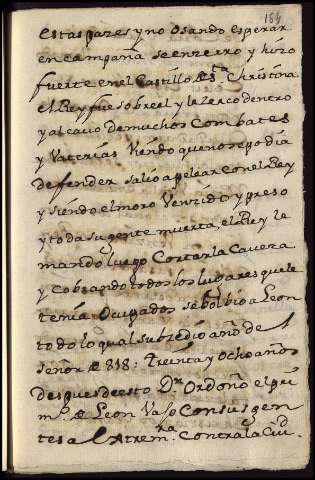 184
estas pazes y no osando esperar
en campaña se enzerro y hizo
fuerte en el Castillo de Sta. Christina
el Rey fue sobre el y le zerco dentro
y al cavo de muchos Combates
y Vaterias Viendo que no se podia
defender salio a pelear con el Rey
y siendo el moro Venzido y preso
y toda su gente muerta, el Rey le
mando luego Cortar la Caveza
y cobrando todos los lugares que le
tenia Ocupados se bolbio a Leon
todo lo qual subzedio año de l
señor de 818: Treinta y ocho años
despues de esto Dn. Ordoño el pri
m.º de Leon Vajo Con sus gen
tes a Extrem.ra Contra la Ciud.